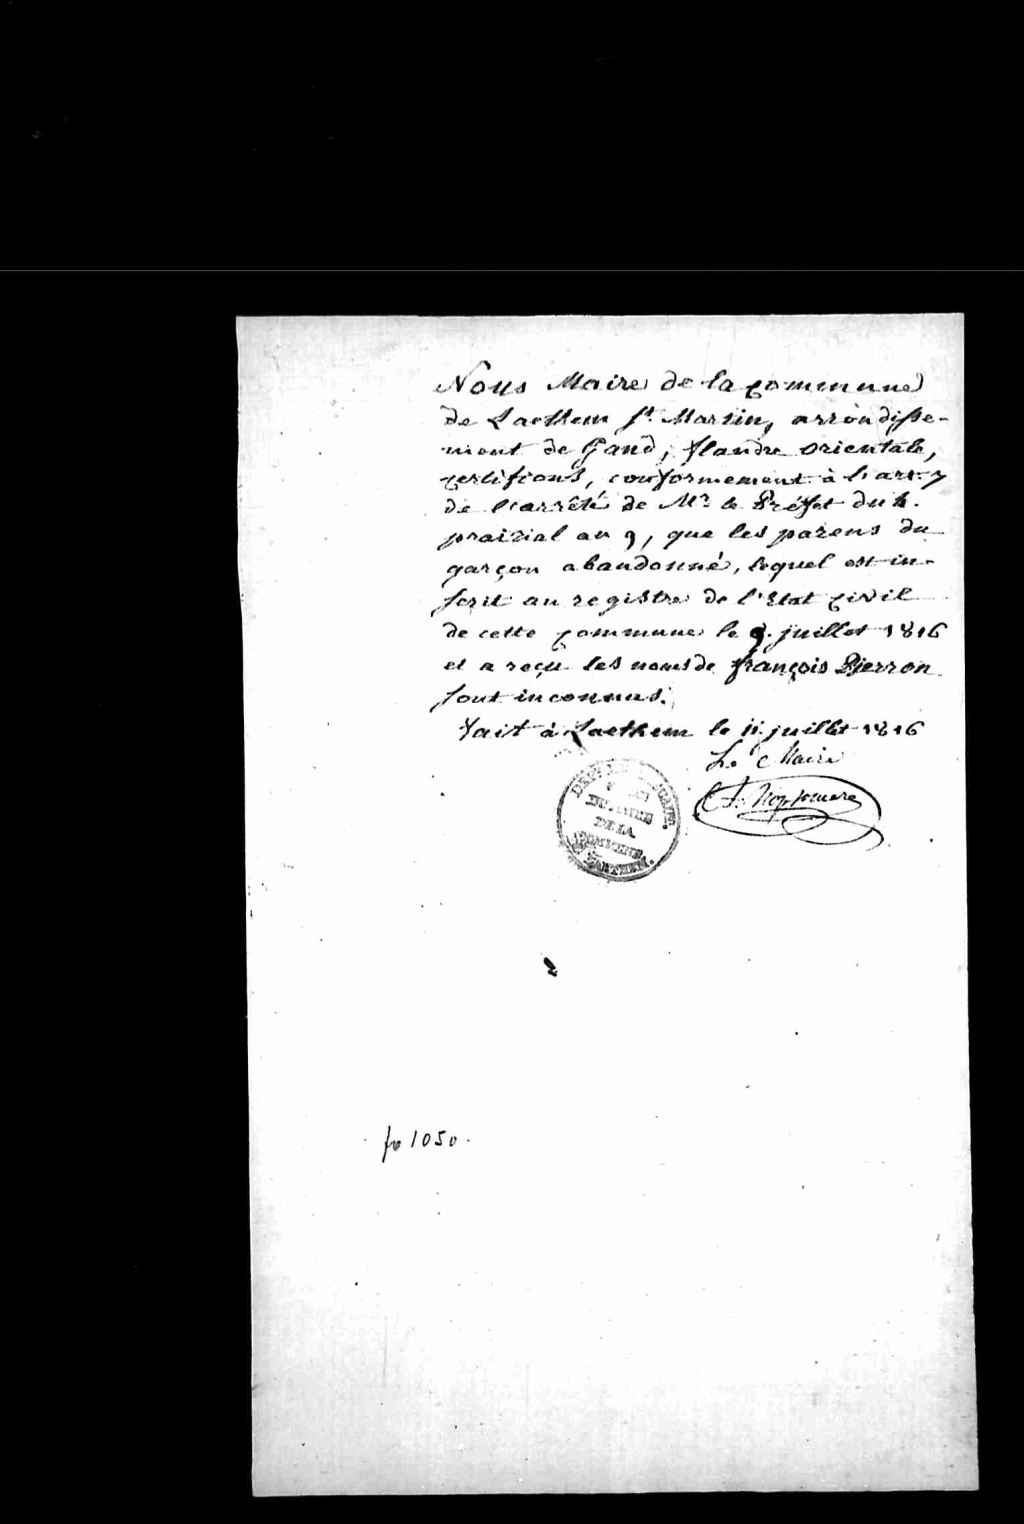 Nous Maire de la commune
de Laethem St. Martin, arrondisse-
ment de Gand, flandre orientale,
certifions, conformement à l'art. 7
de l'arrêté de Mr. le Préfet du 4.
prairial an 9, que les parens du
garçon abandonné, lequel est in-
scrit au registre de l'Etat civil
de cette commune le 9. juillet 1816
et a reçu les noms de françois Pierron
sont inconnus.
fait à Laethem le 11 juillet 1816
Le Maire
DE LA
fo 1050.